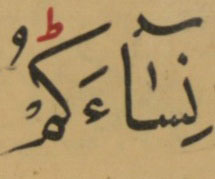 نِسَآءَكُمْؕ